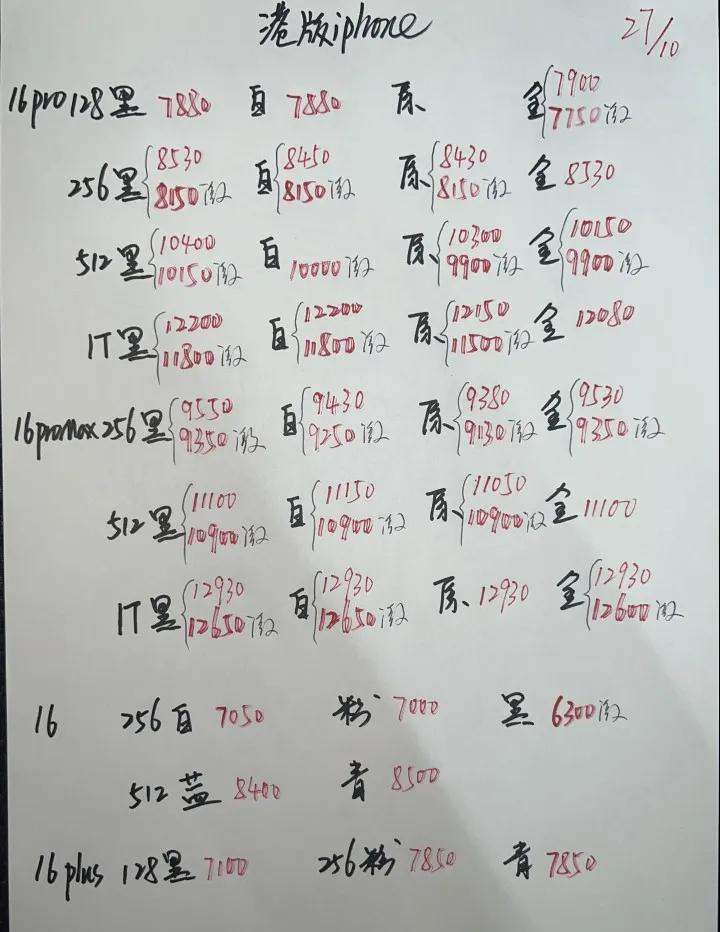 港版iphone 27/10
16pro 128黑 7880 白 7880 原 金 7900
7750激
256黑 8530 白 8450 原 8430 金 8530
8150激 8150激 8150激
512黑 10400 白 10000激 原 10300 金 10150
10150激 9900激 9900激
1T黑 12200 白 12200 原 12150 金 12080
11800激 11800激 11500激
16promax 256黑 9550 白 9430 原 9380 金 9530
9350激 9250激 9130激 9350激
512黑 11100 白 11150 原 11050 金 11100
10900激 10900激 10900激
1T黑 12930 白 12930 原 12930 金 12930
12650激 12650激 12600激
16 256白 7050 粉 7000 黑 6300激
512蓝 8400 青 8500
16plus 128黑 7100 256粉 7850 青 7850